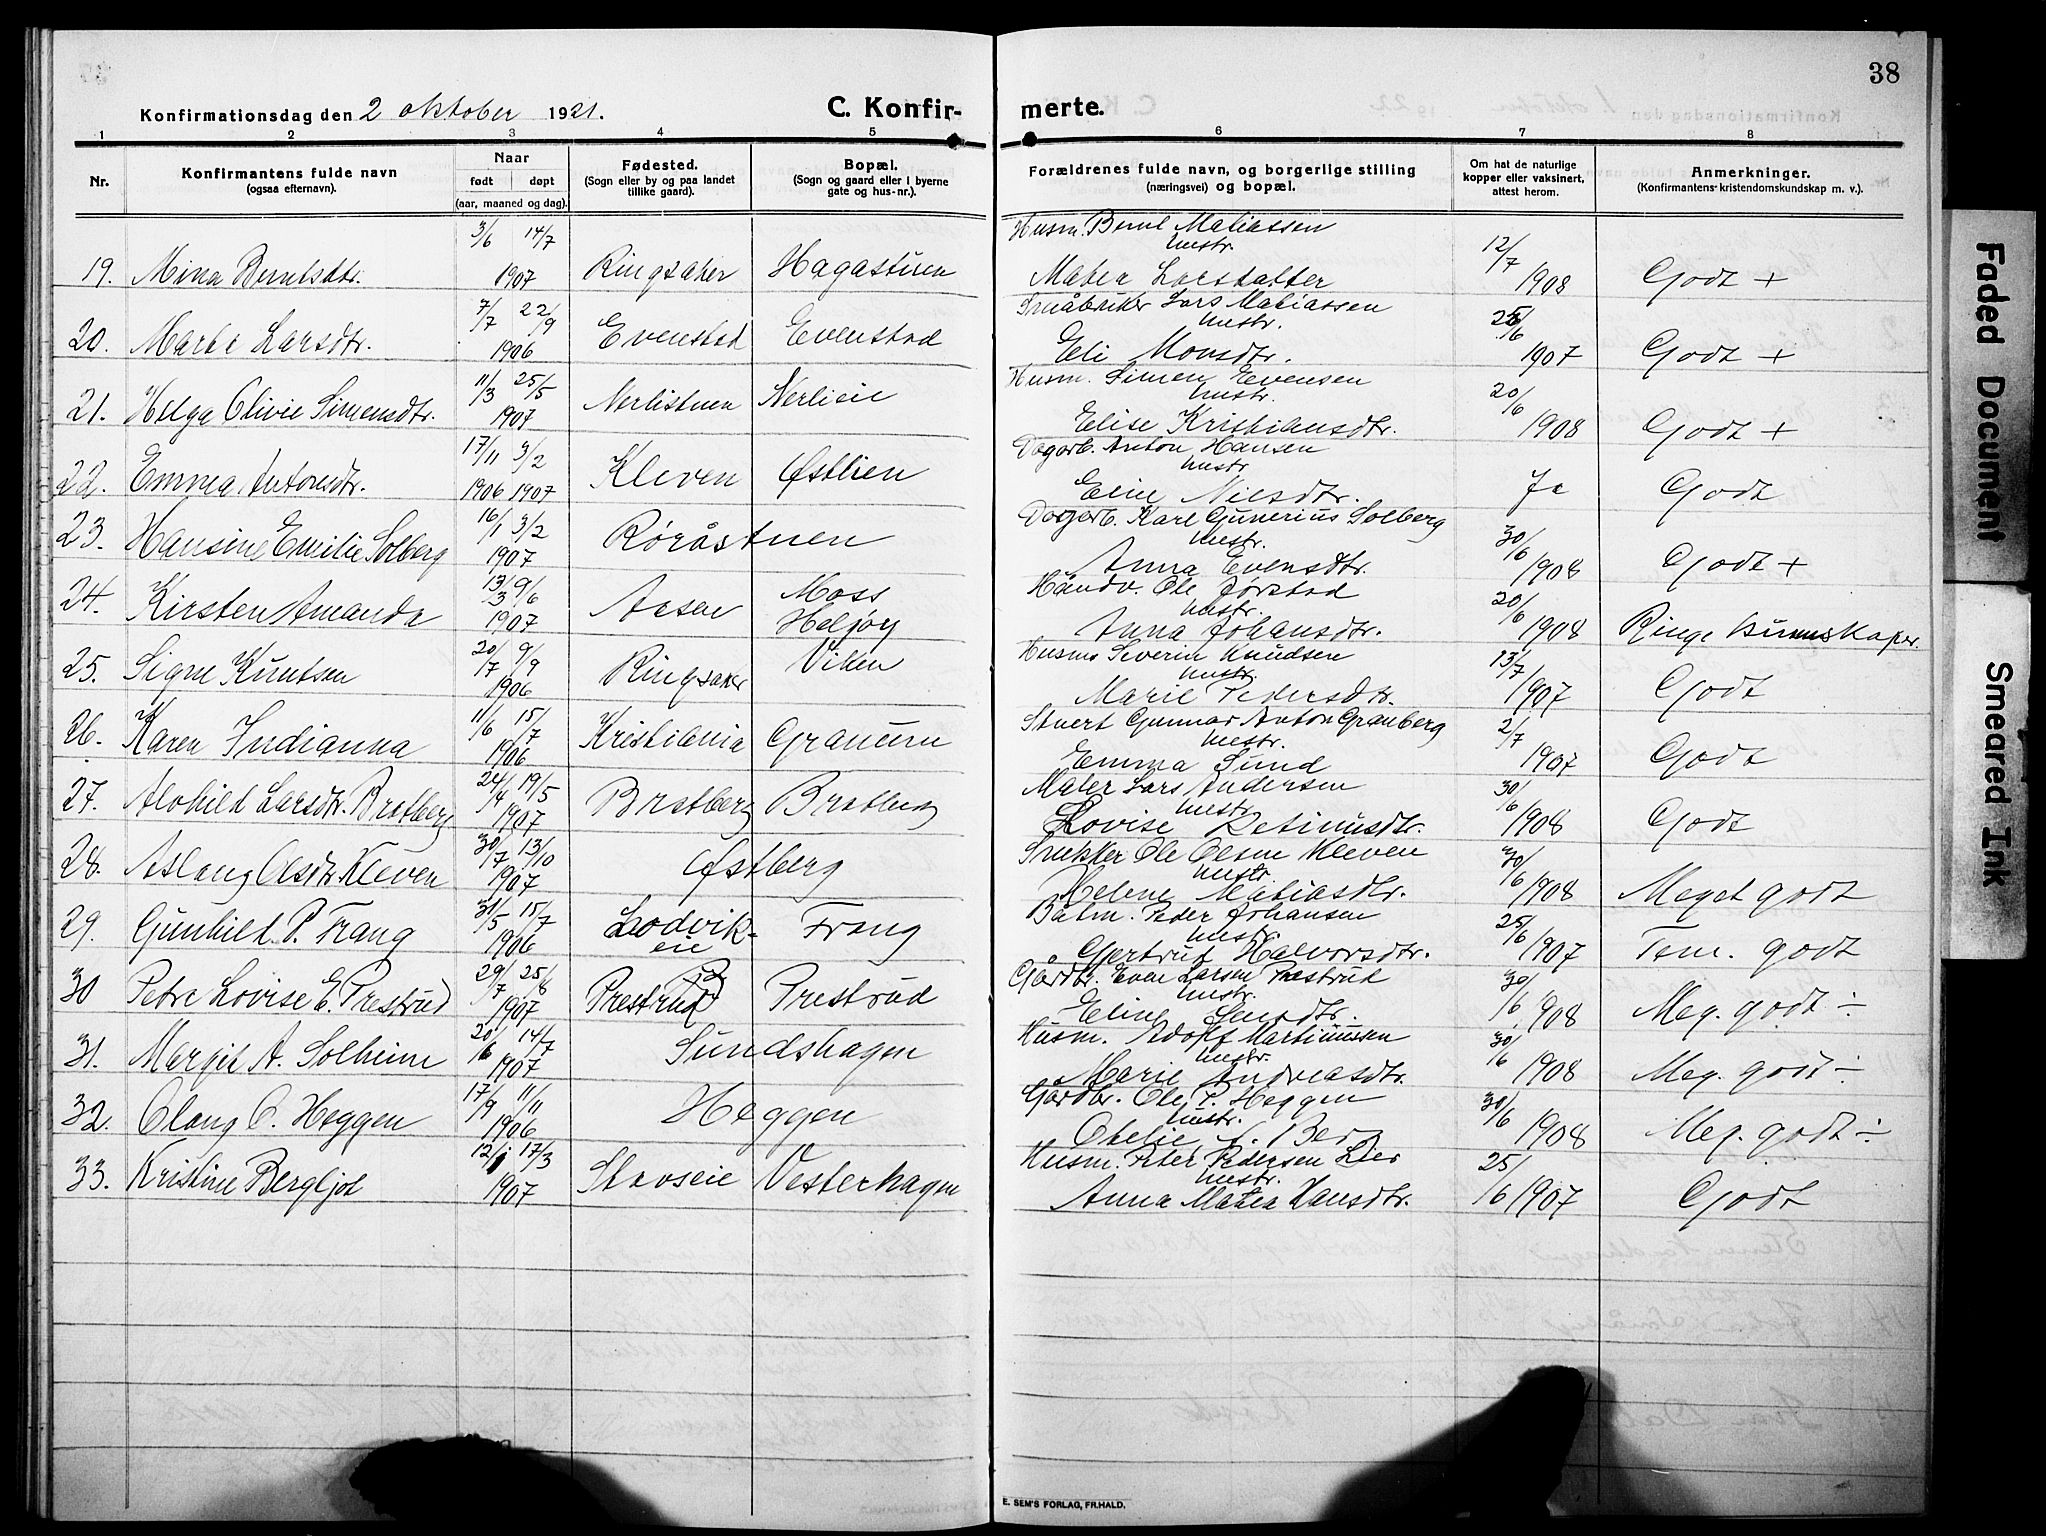 38
Konfirmationsdag den 2 oktober 1921. C. Konfir- merte.
1 2 3 4 5 6 7 8
Nr. Konfirmantens fulde navn (ogsaa efternavn). Naar født døpt (aar, maaned og dag). Fødested. (Sogn eller by og paa landet tillike gaard). Bopæl. (Sogn og gaard eller i byerne gate og hus-nr.). Forældrenes fulde navn, og borgerlige stilling (næringsvei) og bopæl. Om hat de naturlige kopper eller vaksinert, attest herom. Anmerkninger. (Konfirmantens kristendomskundskap m. v.).
19. Mina Berntsdtr. 3/6 14/7 1907 Ringsaker Hagastuen Husm. Bernt Matiassen Hustr. Matea Larsdatter 12/7 1908 Godt +
20. Marte Larsdtr. 7/7 22/9 1906 Evenstad Evenstad Småbruker Lars Matiassen Hustr. Eli Monsdtr. 25/6 1907 Godt +
21. Helga Olivie Simensdtr. 11/3 25/5 1907 Nerlistuen Nerlieie Husm. Simen Evensen Hustr. Elise Kristiansdtr. 20/6 1908 Godt +
22. Emma Antonsdtr. 17/11 3/2 1906 1907 Kleven Østlien Dagarb. Anton Hansen Hustr. Eline Nilsdtr. Ja Godt
23. Hansine Emilie Solberg 16/1 3/2 1907 Roråstuen Dagarb. Karl Gunerius Solberg Hustr. Anna Evensdtr. 30/6 1908 Godt +
24. Kirsten Amanda 13/3 9/6 1907 Aasen Moss Heljøy Håndv. Ole Jørstad Hustr. Anna Johansdtr. 20/6 1908 Ringe kunnskaper.
25. Signe Knutsen 20/7 9/9 1906 Ringsaker Viken Husm. Severin Knudsen Hustr. Marie Pedersdtr. 13/7 1907 Godt
26. Karen Indianna 11/6 15/7 1906 Kristiania Granum Stuert Gunnar Anton Granberg Hustr. Emma Sund 2/7 1907 Godt
27. Alvhild Larsdtr. Bratberg 24/4 19/5 1907 Bratberg Bratberg Maler Lars Andersen Hustr. Lovise Petinusdtr. 30/6 1908 Godt
28. Aslaug Olsdtr Kleven 30/7 13/10 1907 Østberg Snekker Ole Olsen Kleven Hustr. Helene Matiasdtr. 30/6 1908 Meget godt
29. Gunhild P. Frang 31/5 15/7 1906 Lodvik-eie Frang Bålm. Peder Johansen Hustr. Gjertrud Halvorsdtr. 25/6 1907 Tem. godt
30 Petra Lovise E. Prestrud 29/7 25/8 1907 Prestrud Prestrud Gårdbr. Even Larsen Prestrud Hustr. Eline 30/6 1908 Meg. godt ÷
31. Margit A. Solheim 20/6 14/7 1907 Sundshagen Husm. Adolf Martinussen Hustr. Marie Andreasdtr. 30/6 1908 Meg. godt ÷
32. Olaug O. Heggen 17/9 11/11 1906 Heggen Gårdbr. Ole P. Heggen Hustr. Otelie Berg 30/6 1908 Meg. godt ÷
33. Kristine Bergljot 12/1 17/3 1907 Stavseie Vesterhagen Husm. Peter Pedersen Lier Hustr. Anna Matea Hansdtr. 25/6 1907 Godt
E. SEM'S FORLAG, FR.HALD.
Faded Document
Smeared Ink